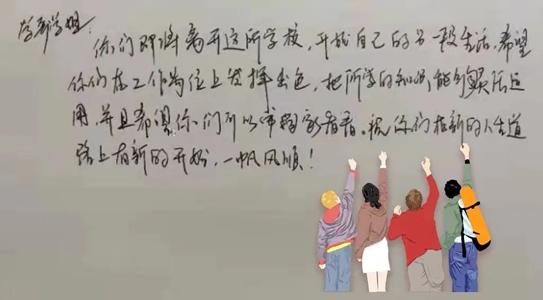 学哥学姐:
你们即将离开这所学校,开始自己的另一段生活,希望
你们在工作岗位上发挥出色,把所学的知识能够灵活运
用,并且希望你们可以常回家看看。祝你们在新的人生道
路上有新的开始,一帆风顺!